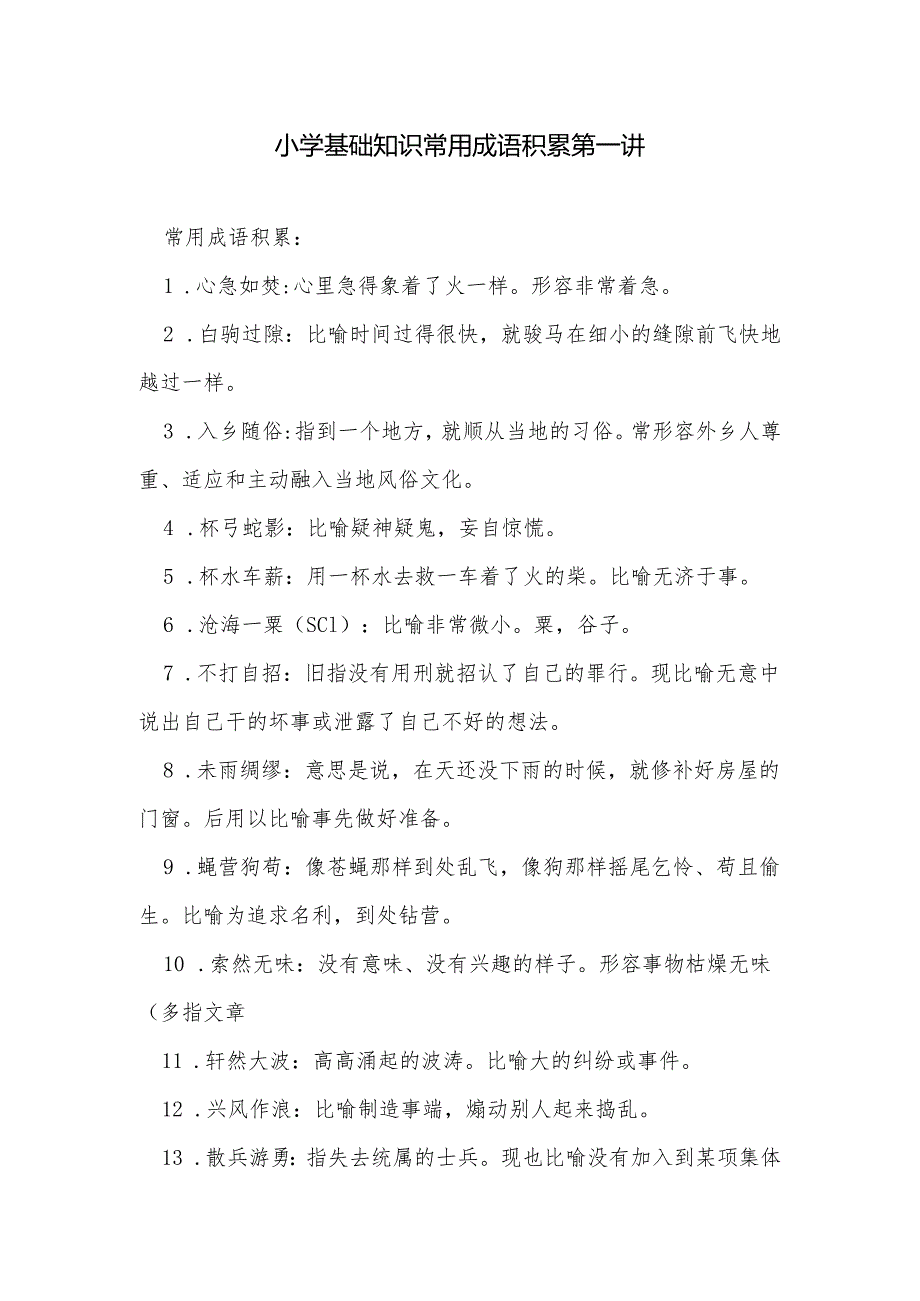 小学基础知识常用成语积累第一讲
常用成语积累：
1 .心急如焚:心里急得象着了火一样。形容非常着急。
2 .白驹过隙：比喻时间过得很快，就骏马在细小的缝隙前飞快地
越过一样。
3 .入乡随俗:指到一个地方，就顺从当地的习俗。常形容外乡人尊
重、适应和主动融入当地风俗文化。
4 .杯弓蛇影：比喻疑神疑鬼，妄自惊慌。
5 .杯水车薪：用一杯水去救一车着了火的柴。比喻无济于事。
6 .沧海一粟（SCl）：比喻非常微小。粟，谷子。
7 .不打自招：旧指没有用刑就招认了自己的罪行。现比喻无意中
说出自己干的坏事或泄露了自己不好的想法。
8 .未雨绸缪：意思是说，在天还没下雨的时候，就修补好房屋的
门窗。后用以比喻事先做好准备。
9 .蝇营狗苟：像苍蝇那样到处乱飞，像狗那样摇尾乞怜、苟且偷
生。比喻为追求名利，到处钻营。
10 .索然无味：没有意味、没有兴趣的样子。形容事物枯燥无味
（多指文章
11 .轩然大波：高高涌起的波涛。比喻大的纠纷或事件。
12 .兴风作浪：比喻制造事端，煽动别人起来捣乱。
13 .散兵游勇：指失去统属的士兵。现也比喻没有加入到某项集体